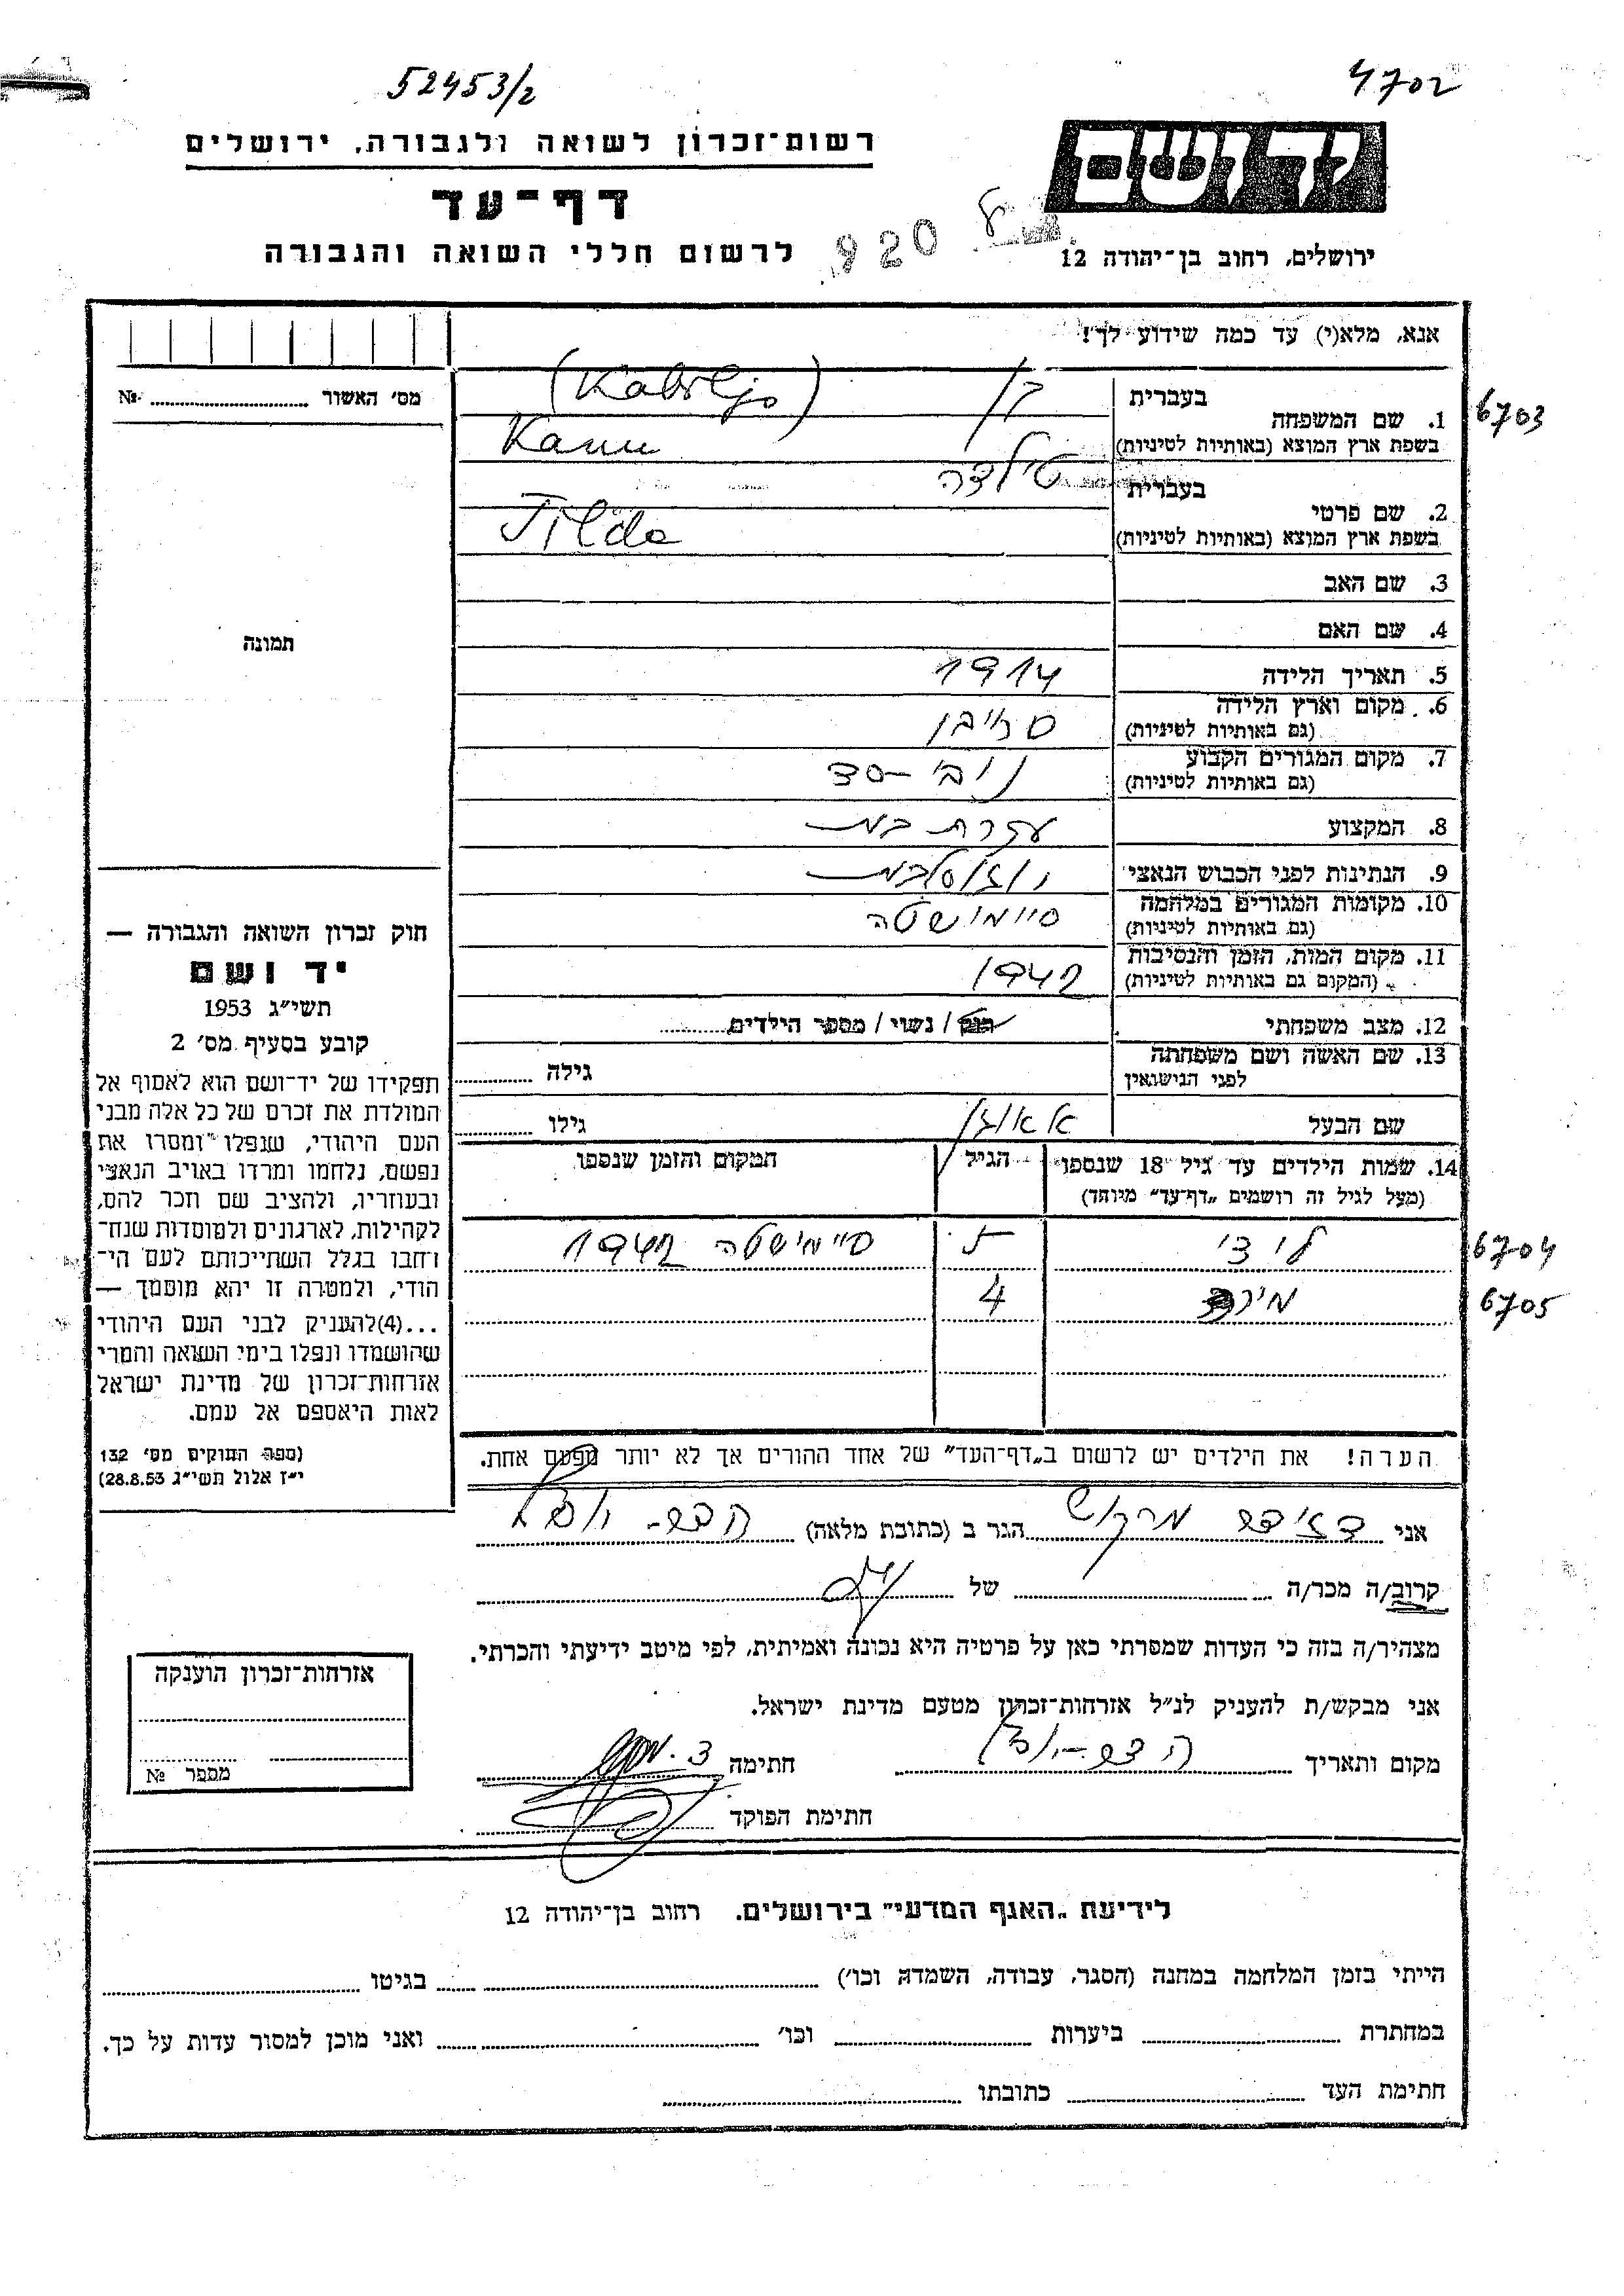 52453/2
4702
יד ושם
רשות־זכרון לשואה ולגבורה, ירושלים
דף־עד
לרשום חללי השואה והגבורה
920
ירושלים, רחוב בן־יהודה 12
אנא, מלא(י) עד כמה שידוע לך!
מס׳ האשור № 
בעברית
1. שם המשפחה
בשפת ארץ המוצא (באותיות לטיניות)
כן (Kabiljo)
6703
בעברית טילדה
2. שם פרטי
בשפת ארץ המוצא (באותיות לטיניות) Tilda
3. שם האב
4. שם האם
תמונה
5. תאריך הלידה 1914
6. מקום וארץ הלידה
(גם באותיות לטיניות)
7. מקום המגורים הקבוע נובי-סד
(גם באותיות לטיניות)
8. המקצוע עקרת בית
9. הנתינות לפני הכבוש הנאצי יוגוסלבית
10. מקומות המגורים במלחמה סיימישטה
(גם באותיות לטיניות)
11. מקום המות, הזמן והנסיבות 1942
(המקום גם באותיות לטיניות)
12. מצב משפחתי רוק / נשוי / מספר הילדים
13. שם האשה ושם משפחתה גילה
לפני הנישואין
שם הבעל גילו
14. שמות הילדים עד גיל 18 שנספו הגיל המקום והזמן שנספו
(מעל לגיל זה רושמים „דף־עד״ מיוחד)
סיימישטה 1942
6704
4
6705
חוק זכרון השואה והגבורה —
יד ושם
תשי״ג 1953
קובע בסעיף מס׳ 2
תפקידו של יד־ושם הוא לאסוף אל
המולדת את זכרם של כל אלה מבני
העם היהודי, שנפלו ומסרו את
נפשם, נלחמו ומרדו באויב הנאצי
ובעוזריו, ולהציב שם וזכר להם,
לקהילות, לארגונים ולמוסדות שנח־
רחבו בגלל השתייכותם לעם הי־
הודי, ולמטרה זו יהא מוסמך —
...(4) להעניק לבני העם היהודי
שהושמדו ונפלו בימי השואה והמרי
אזרחות־זכרון של מדינת ישראל
לאות היאספם אל עמם.
(ספר החוקים מס׳ 132
י״ז אלול תשי״ג 28.8.53)
הערה! את הילדים יש לרשום ב„דף־העד״ של אחד ההורים אך לא יותר מפעם אחת.
אני מרקוש הגר ב (כתובת מלאה)
קרוב/ה מכר/ה של
מצהיר/ה בזה כי העדות שמסרתי כאן על פרטיה היא נכונה ואמיתית, לפי מיטב ידיעתי והכרתי.
אני מבקש/ת להעניק לנ״ל אזרחות־זכרון מטעם מדינת ישראל.
מקום ותאריך חתימה
חתימת הפוקד
אזרחות־זכרון הוענקה
מספר №
לידיעת „האגף המדעי״ בירושלים. רחוב בן־יהודה 12
הייתי בזמן המלחמה במחנה (הסגר, עבודה, השמדה וכו׳) בגיטו
במחתרת ביערות וכו׳ ואני מוכן למסור עדות על כך.
חתימת העד כתובתו